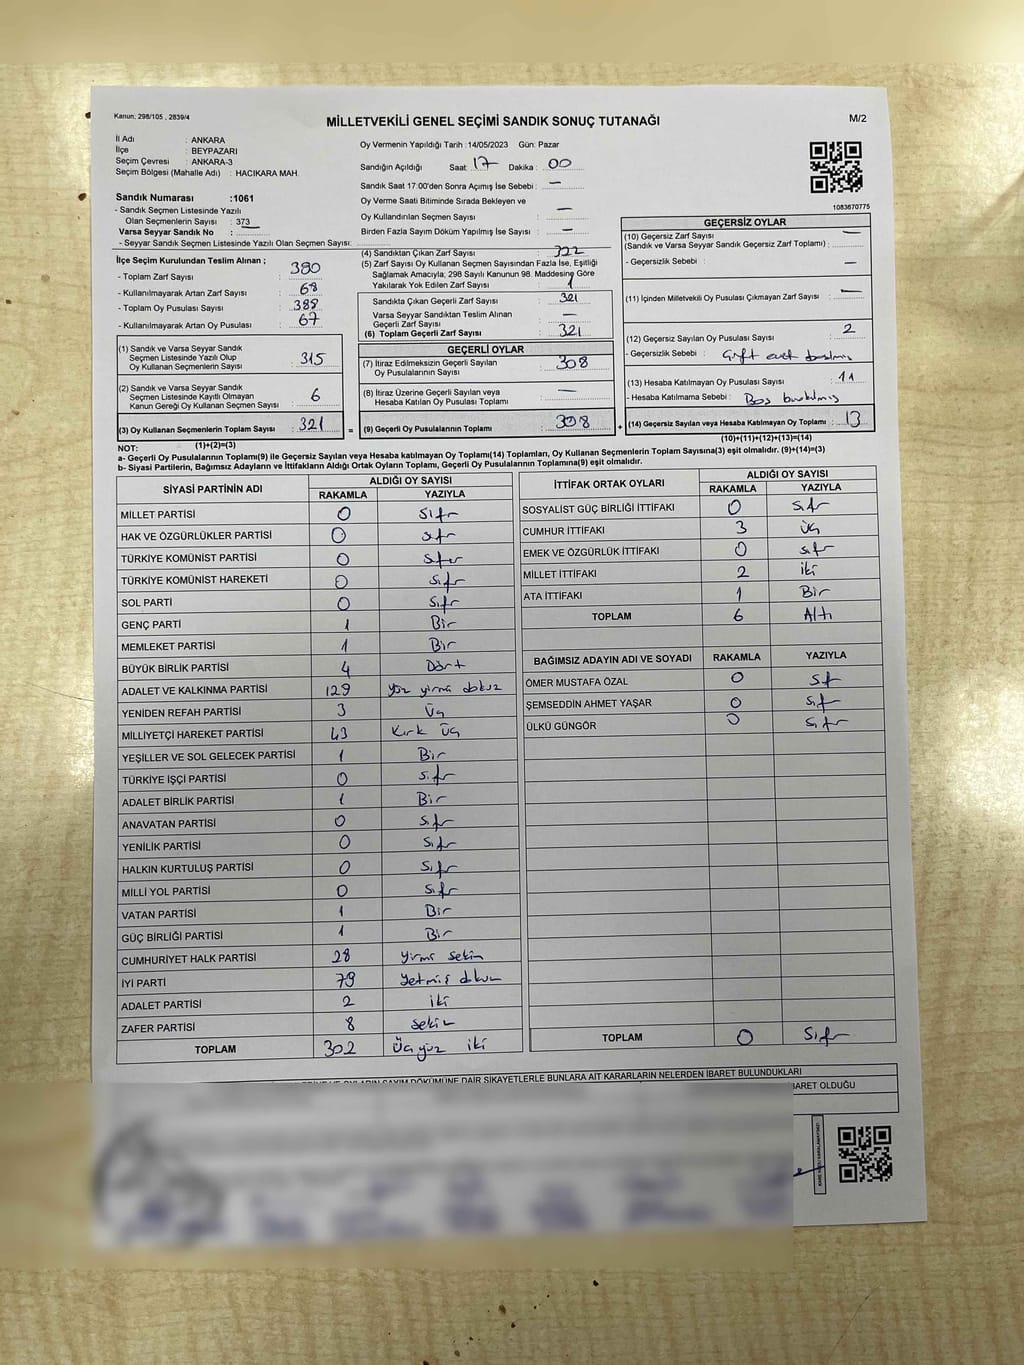 Kanun: 298/105 , 2839/4
MİLLETVEKİLİ GENEL SEÇİMİ SANDIK SONUÇ TUTANAĞI
M/2
İl Adı : ANKARA
İlçe : BEYPAZARI
Seçim Çevresi : ANKARA-3
Seçim Bölgesi (Mahalle Adı) : HACIKARA MAH.
Sandık Numarası :1061
- Sandık Seçmen Listesinde Yazılı
Olan Seçmenlerin Sayısı : 373
Varsa Seyyar Sandık No : —
- Seyyar Sandık Seçmen Listesinde Yazılı Olan Seçmen Sayısı:
Oy Vermenin Yapıldığı Tarih :14/05/2023 Gün: Pazar
Sandığın Açıldığı Saat: 17 Dakika : 00
Sandık Saat 17:00'den Sonra Açımış İse Sebebi : —
Oy Verme Saati Bitiminde Sırada Bekleyen ve
Oy Kullandırılan Seçmen Sayısı : —
Birden Fazla Sayım Döküm Yapılmış İse Sayısı : —
1083670775
İlçe Seçim Kurulundan Teslim Alınan ;
- Toplam Zarf Sayısı : 380
- Kullanılmayarak Artan Zarf Sayısı : 68
- Toplam Oy Pusulası Sayısı : 388
- Kullanılmayarak Artan Oy Pusulası : 67
(1) Sandık ve Varsa Seyyar Sandık
Seçmen Listesinde Yazılı Olup
Oy Kullanan Seçmenlerin Sayısı : 315
(2) Sandık ve Varsa Seyyar Sandık
Seçmen Listesinde Kayıtlı Olmayan
Kanun Gereği Oy Kullanan Seçmen Sayısı : 6
(3) Oy Kullanan Seçmenlerin Toplam Sayısı : 321
(1)+(2)=(3)
(4) Sandıktan Çıkan Zarf Sayısı : 322
(5) Zarf Sayısı Oy Kullanan Seçmen Sayısından Fazla İse, Eşitliği
Sağlamak Amacıyla; 298 Sayılı Kanunun 98. Maddesine Göre
Yakılarak Yok Edilen Zarf Sayısı : 1
Sandıkta Çıkan Geçerli Zarf Sayısı : 321
Varsa Seyyar Sandıktan Teslim Alınan
Geçerli Zarf Sayısı : —
(6) Toplam Geçerli Zarf Sayısı : 321
GEÇERLİ OYLAR
(7) İtiraz Edilmeksizin Geçerli Sayılan
Oy Pusulalarının Sayısı : 308
(8) İtiraz Üzerine Geçerli Sayılan veya
Hesaba Katılan Oy Pusulası Toplamı : —
= (9) Geçerli Oy Pusulalarının Toplamı : 308
GEÇERSİZ OYLAR
(10) Geçersiz Zarf Sayısı —
(Sandık ve Varsa Seyyar Sandık Geçersiz Zarf Toplamı) :
- Geçersizlik Sebebi : —
(11) İçinden Milletvekili Oy Pusulası Çıkmayan Zarf Sayısı : —
(12) Geçersiz Sayılan Oy Pusulası Sayısı : 2
- Geçersizlik Sebebi :
(13) Hesaba Katılmayan Oy Pusulası Sayısı : 11
- Hesaba Katılmama Sebebi : Boş bırakılmış
+ (14) Geçersiz Sayılan veya Hesaba Katılmayan Oy Toplamı : 13
(10)+(11)+(12)+(13)=(14)
NOT:
a- Geçerli Oy Pusulaları Toplamı(9) ile Geçersiz Sayılan veya Hesaba katılmayan Oy Toplamı(14) Toplamları, Oy Kullanan Seçmenlerin Toplam Sayısına(3) eşit olmalıdır. (9)+(14)=(3)
b- Siyasi Partilerin, Bağımsız Adayların ve İttifakların Aldığı Ortak Oyların Toplamı, Geçerli Oy Pusulalarının Toplamına(9) eşit olmalıdır.
SİYASİ PARTİNİN ADI ALDIĞI OY SAYISI
RAKAMLA YAZIYLA
MİLLET PARTİSİ 0 Sıfır
HAK VE ÖZGÜRLÜKLER PARTİSİ 0 sıfır
TÜRKİYE KOMÜNİST PARTİSİ 0 sıfır
TÜRKİYE KOMÜNİST HAREKETİ 0 sıfır
SOL PARTİ 0 Sıfır
GENÇ PARTİ 1 Bir
MEMLEKET PARTİSİ 1 Bir
BÜYÜK BİRLİK PARTİSİ 4 Dört
ADALET VE KALKINMA PARTİSİ 129 yüz yirmi dokuz
YENİDEN REFAH PARTİSİ 3 Üç
MİLLİYETÇİ HAREKET PARTİSİ 43 Kırk Üç
YEŞİLLER VE SOL GELECEK PARTİSİ 1 Bir
TÜRKİYE İŞÇİ PARTİSİ 0 sıfır
ADALET BİRLİK PARTİSİ 1 Bir
ANAVATAN PARTİSİ 0 sıfır
YENİLİK PARTİSİ 0 Sıfır
HALKIN KURTULUŞ PARTİSİ 0 Sıfır
MİLLİ YOL PARTİSİ 0 Sıfır
VATAN PARTİSİ 1 Bir
GÜÇ BİRLİĞİ PARTİSİ 1 Bir
CUMHURİYET HALK PARTİSİ 28 yirmi sekiz
İYİ PARTİ 79 yetmiş dokuz
ADALET PARTİSİ 2 iki
ZAFER PARTİSİ 8 sekiz
TOPLAM 302 Üçyüz iki
İTTİFAK ORTAK OYLARI ALDIĞI OY SAYISI
RAKAMLA YAZIYLA
SOSYALİST GÜÇ BİRLİĞİ İTTİFAKI 0 Sıfır
CUMHUR İTTİFAKI 3 Üç
EMEK VE ÖZGÜRLÜK İTTİFAKI 0 sıfır
MİLLET İTTİFAKI 2 iki
ATA İTTİFAKI 1 Bir
TOPLAM 6 Altı
BAĞIMSIZ ADAYIN ADI VE SOYADI RAKAMLA YAZIYLA
ÖMER MUSTAFA ÖZAL 0 Sıfır
ŞEMSEDDİN AHMET YAŞAR 0 Sıfır
ÜLKÜ GÜNGÖR 0 Sıfır
TOPLAM 0 Sıfır
OYLARIN SAYIM DÖKÜMÜNE DAİR ŞİKAYETLERLE BUNLARA AİT KARARLARIN NELERDEN İBARET BULUNDUKLARI
BARET OLDUĞU